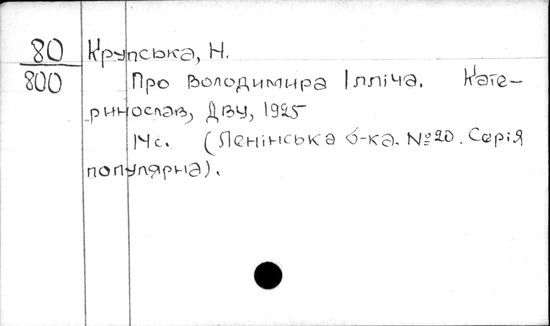 80
800
Крупська, Н.
Про Володимира Ілліча. Кате-
ринослав, ДВУ, 1925
14с. (Ленінська б-ка. №20. Серія
популярна).